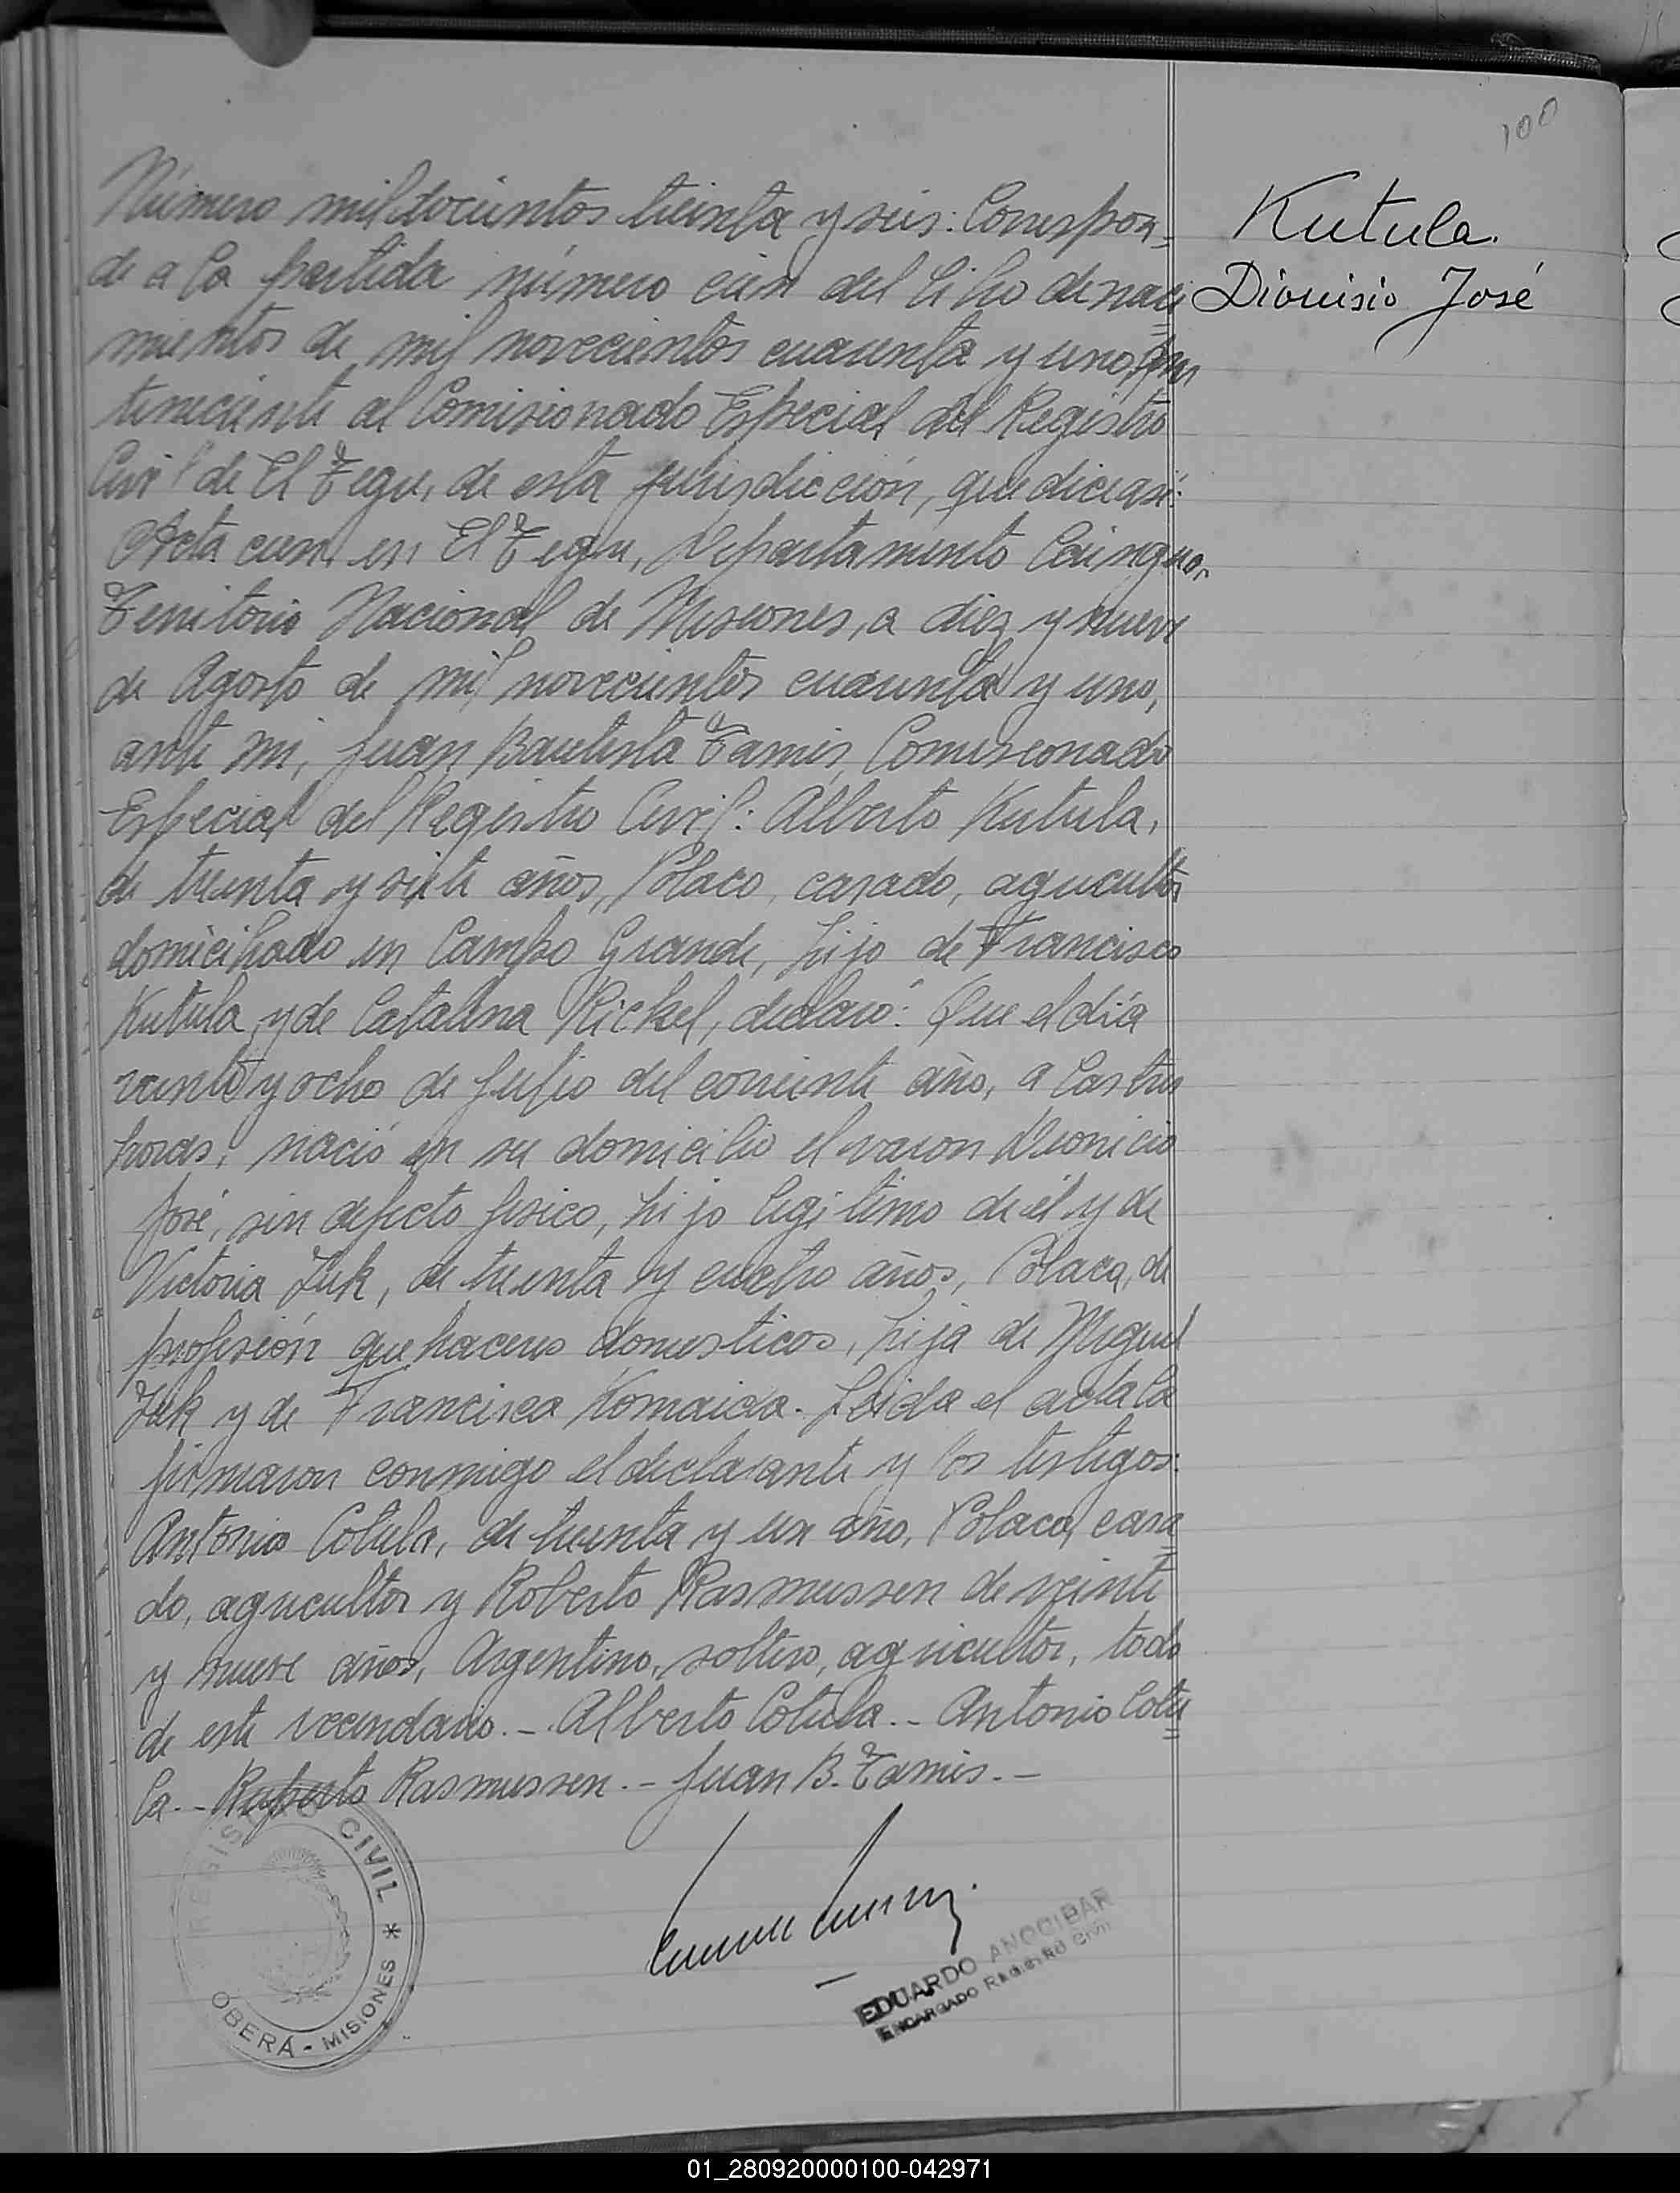 100
Kutula.
Dionisio José
Número mil docientos treinta y seis: Correspon=
de a la partida número cien del Libro de naci=
mientos de mil novecientos cuarenta y uno, per
teneciente al Comisionado Especial del Registro
Civil de El Tegu, de esta jurisdicción, que dice asi:
Acta cien en El Tegu, Departamento Cainguas,
Territorio Nacional de Misiones, a diez y nueve
de Agosto de mil novecientos cuarenta y uno,
ante mi, Juan Bautista Tamis, Comisionado
Especial del Registro Civil: Alberto Kutula,
de treinta y siete años, Polaco, casado, agricultor
domiciliado en Campo Grande, hijo de Francisco
Kutula y de Catalina Rickel, declaró: Que el día
veinte y ocho de Julio del corriente año, a las tres
horas, nació en su domicilio el varon Dionicio
José, sin defecto fisico, hijo legitimo de él y de
Victoria Juk, de treinta y cuatro años, Polaca, de
profesión quehaceres domesticos, hija de Miguel
Juk y de Francisca Komaicia. Leida el acta la
firmaron conmigo el declarante y los testigos:
Antonio Cotula, de treinta y un año, Polaco, casa=
do, agricultor y Roberto Rasmussen de veinte
y nueve años, Argentino, soltero, agricultor, todo
de este vecindario.- Alberto Cotula.- Antonio Cotu=
la.- Ruperto Rasmussen.- Juan B. Tamis.-
REGISTRO CIVIL *
OBERÁ - MISIONES *
EDUARDO ANOCIBAR
ENCARGADO REGISTRO CIVIL
01_280920000100-042971